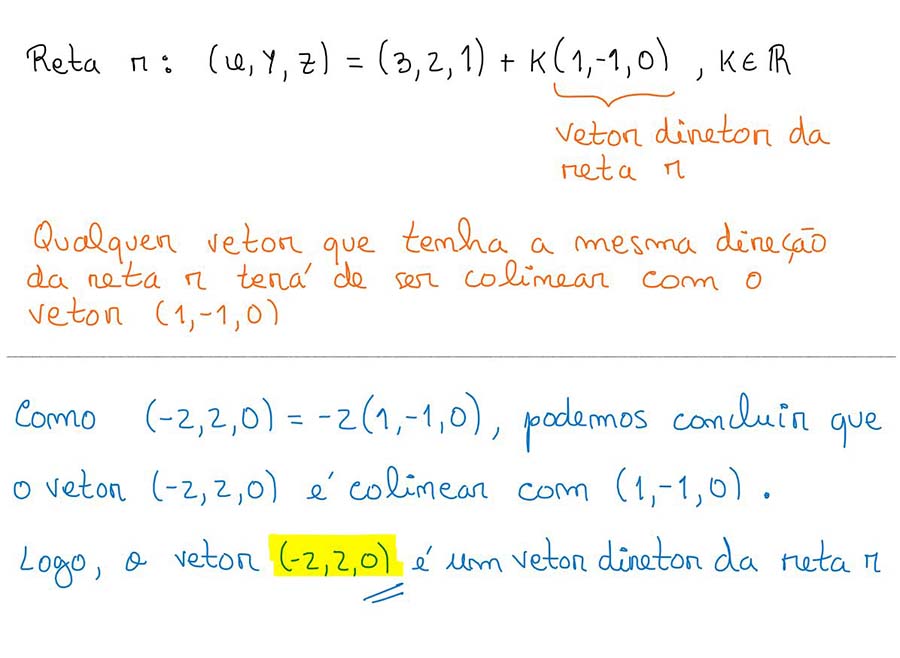 Reta r: (x, y, z) = (3, 2, 1) + K(1,-1,0) , K∈ℝ
vetor diretor da
reta r
Qualquer vetor que tenha a mesma direção
da reta r terá de ser colinear com o
vetor (1,-1,0)
Como (-2,2,0) = -2(1,-1,0), podemos concluir que
o vetor (-2,2,0) é colinear com (1,-1,0).
Logo, o vetor (-2,2,0) é um vetor diretor da reta r